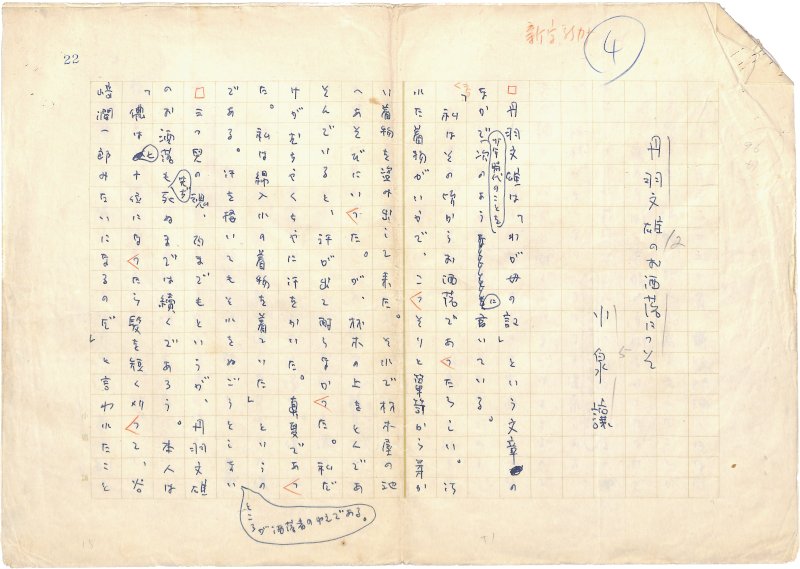 22
4
丹羽文雄のお洒落について
小泉譲
丹羽文雄は「わが母の記」という文章の
なかで少年時代のことを次のように言いている。
「私はその頃からお洒落であったらしい。汚
れた着物がいやで、こっそりと箪笥から単か
い着物を盗み出して来た。それで材木屋の池
へあそびにいった。が、材木の上をとんであ
そんでいると、汗が出て耐らなかった。私だ
けがむちゃくちゃに汗をかいた。真夏であっ
た。私は綿入れの着物を着ていた」というの
である。汗を掻いてもそれをぬごうとしない
ところが洒落者の
である。
三つ児の魂、百までもというが、丹羽文雄
のお洒落も先ず死ぬまでは続くであろう。本人は
「僕は
十位になったら髪を短く刈って、谷
崎潤一郎みたいになるのだ」と言われたこと